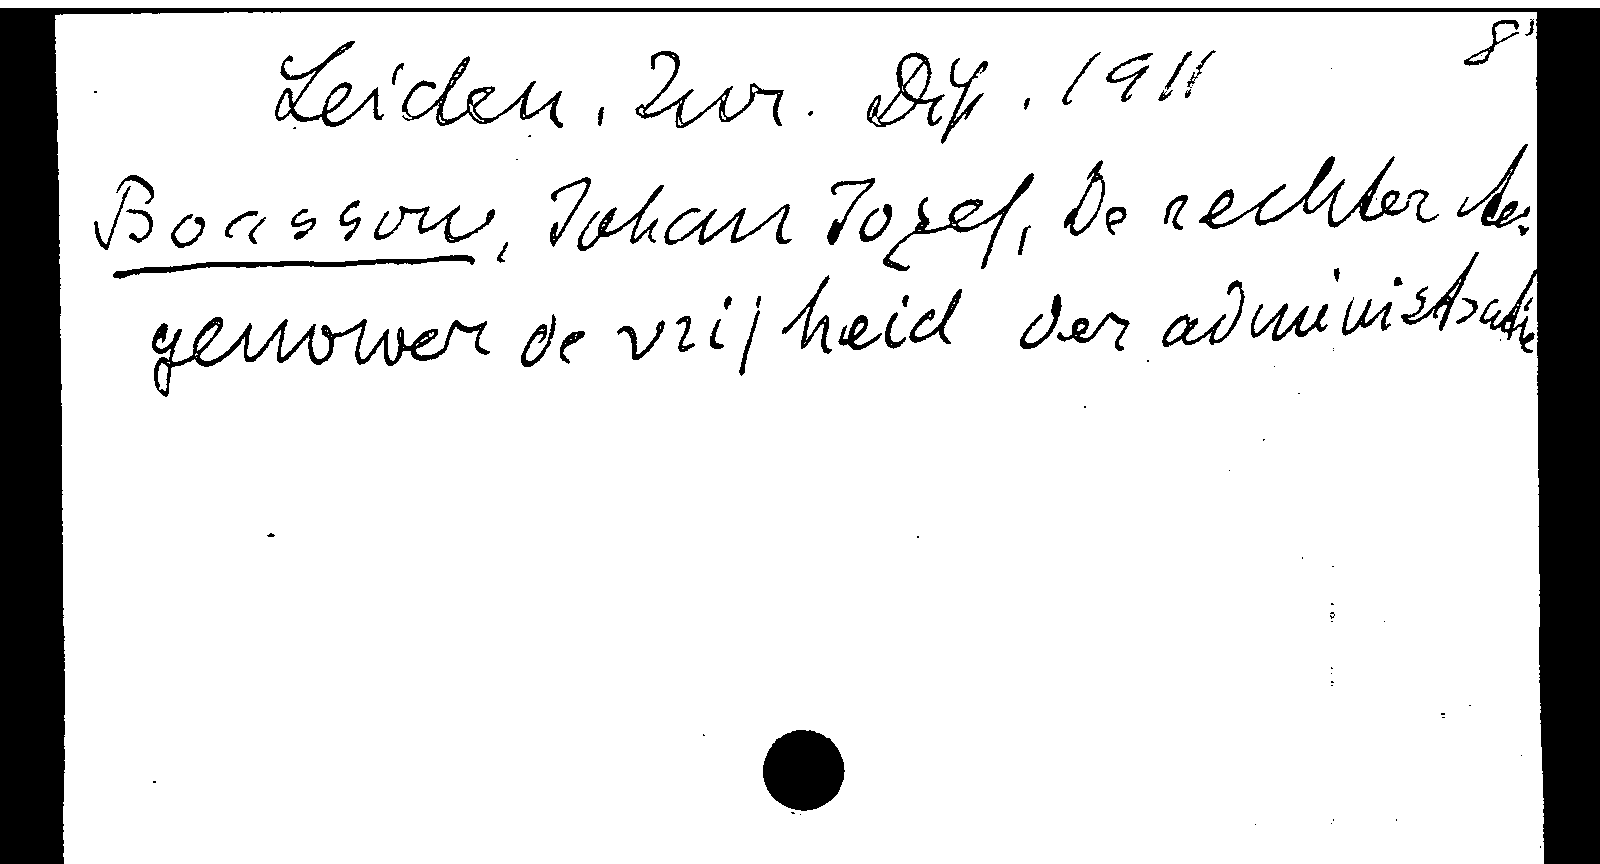 8°
Leiden, Jur. Diss. 1911
Boasson, Johan Jozef, De rechter te-
genover de vrijheid der administratie